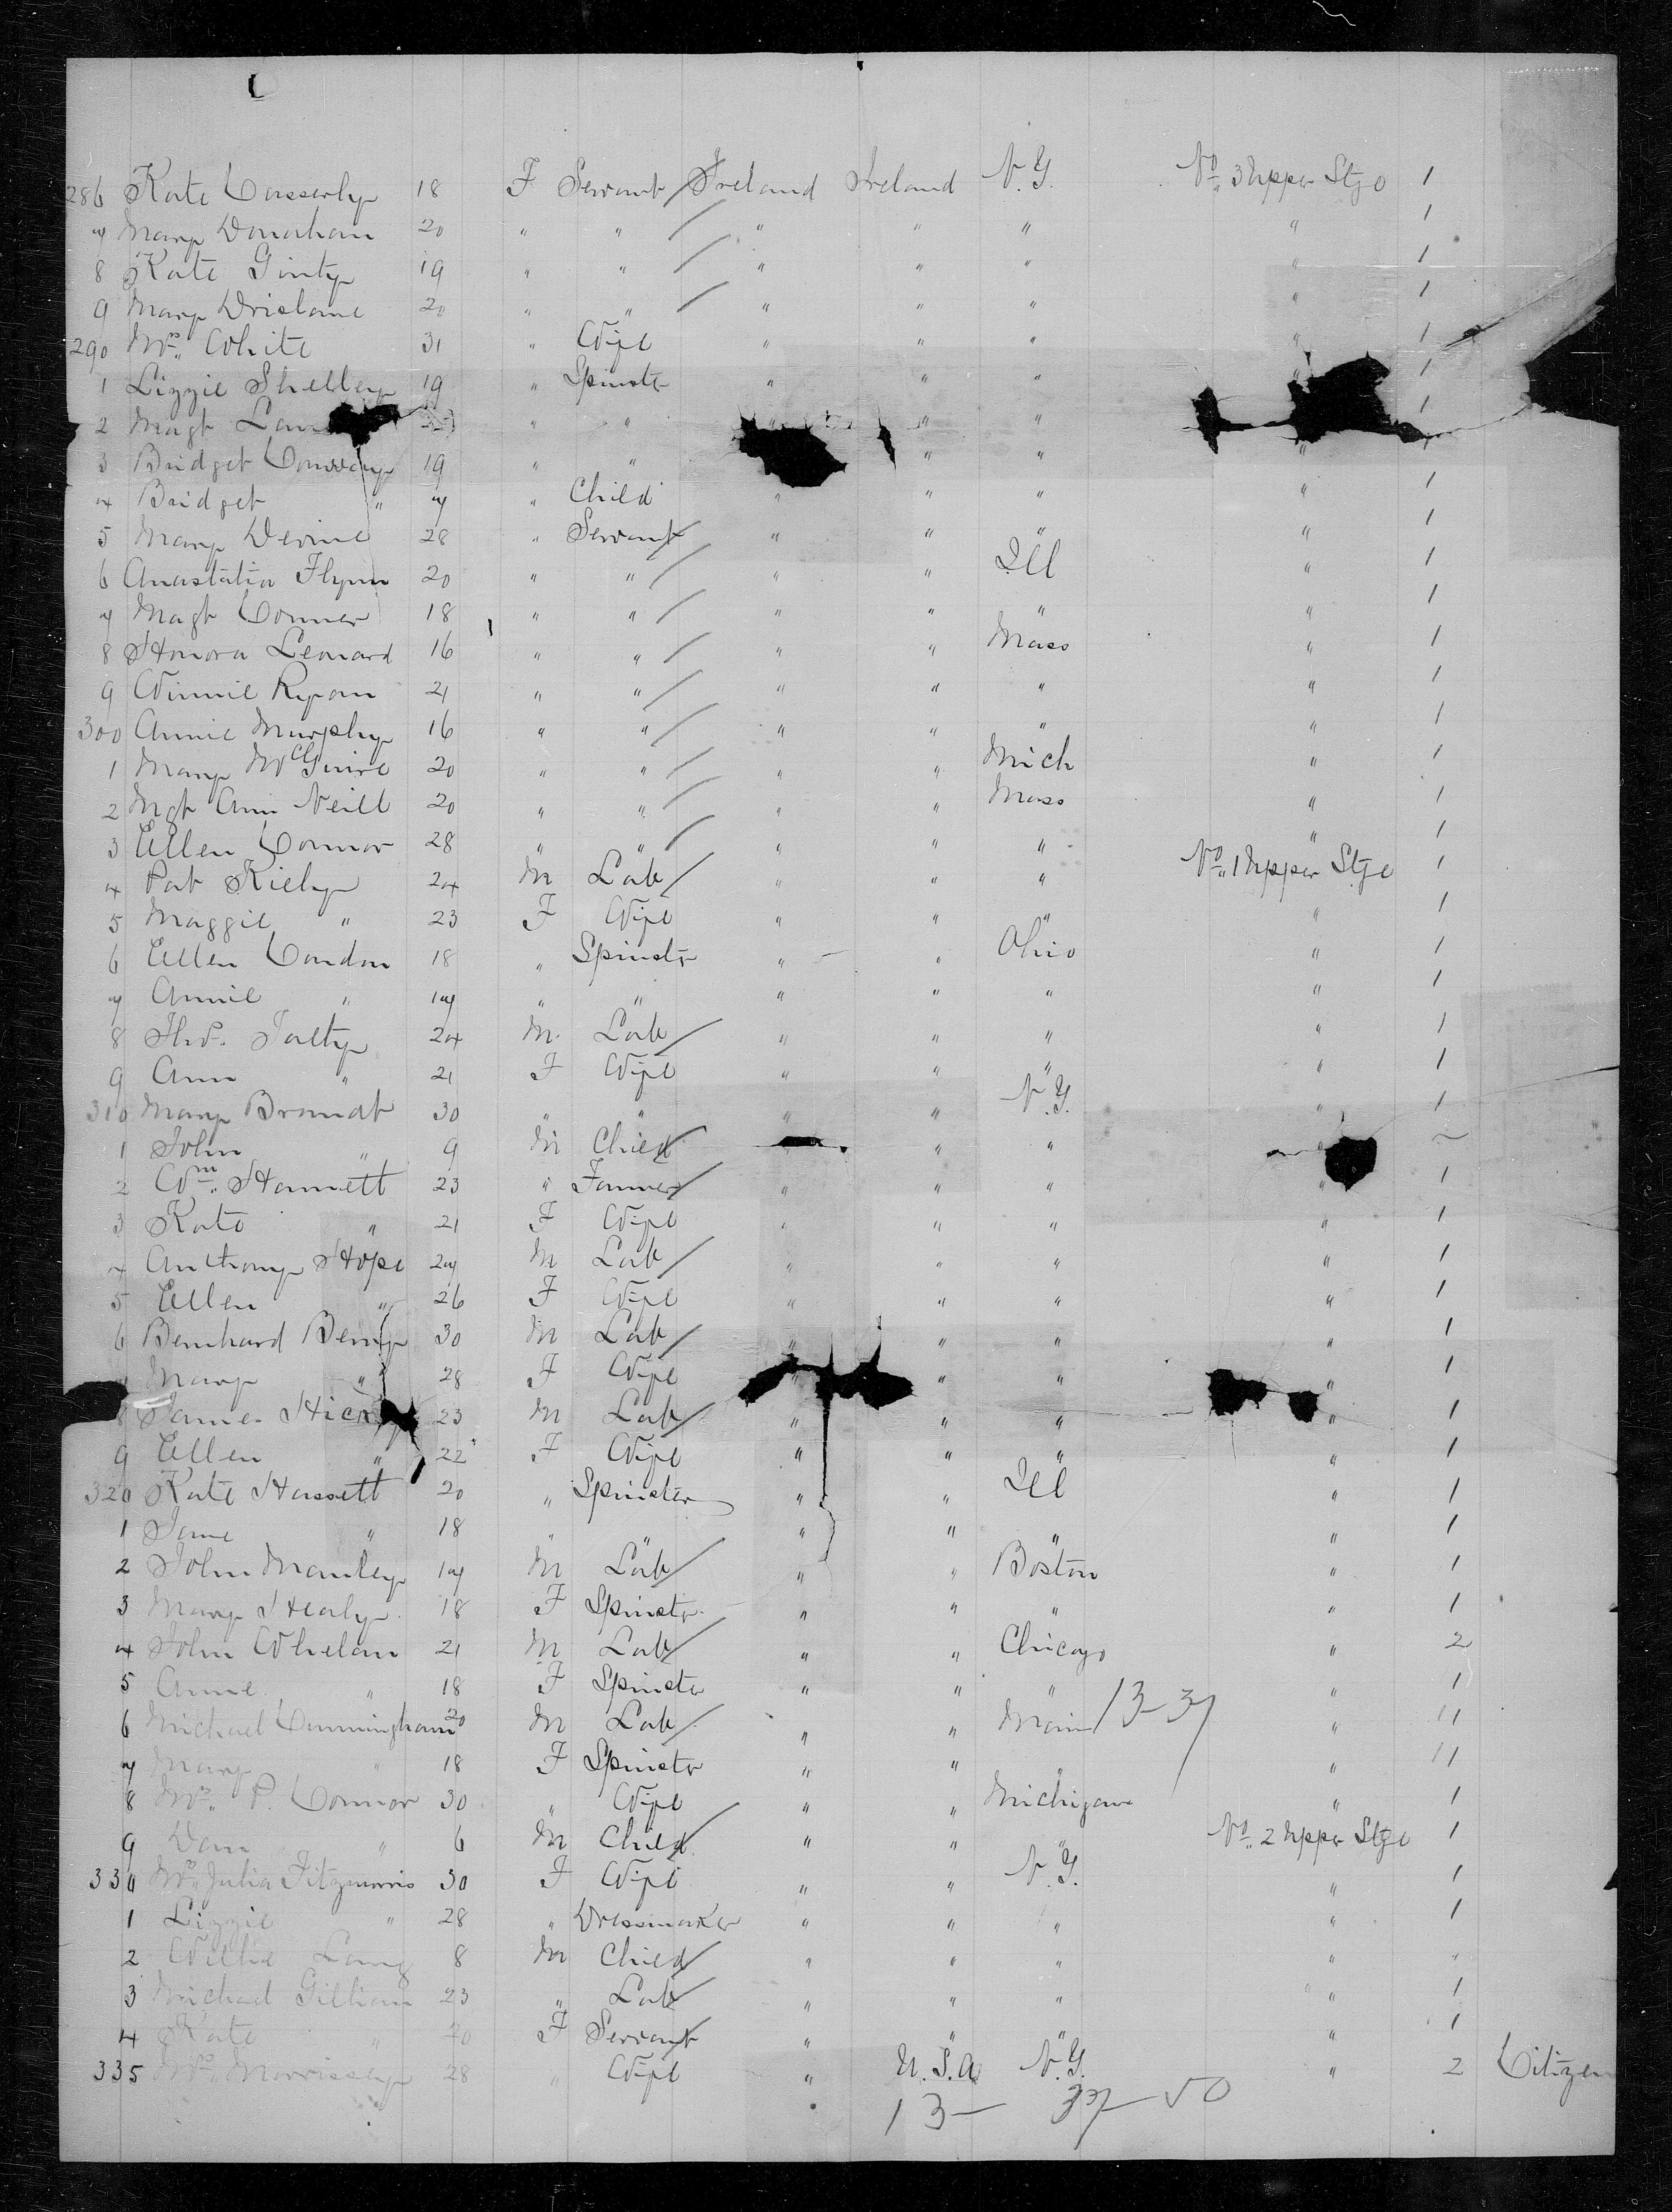 286 Kate Casserly 18 F Servant Ireland Ireland N.Y. No 3 Upper Stge 1
7 Mary Donahan 20 " " " " " " 1
8 Kate Ginty 19 " " " " " " 1
9 Mary Drislane 20 " " " " " " 1
290 Mrs. White 31 " Wife " " " " 1
1 Lizzie Shelley 19 " Spinster " " " " 1
2 Magt " " " " " 1
3 Bridget Conway 19 " " " " " 1
4 Bridget " 7 " Child " " " " 1
5 Mary Devine 28 " Servant " " " " 1
6 Anastatia Flynn 20 " " " " Ill " 1
7 Magt Connor 18 " " " " " " 1
8 Honora Leonard 16 " " " " Mass " 1
9 Winnie Ryan 21 " " " " " " 1
300 Annie Murphy 16 " " " " " " 1
1 Mary McGuire 20 " " " " Mich " 1
2 Mgt Ann Neill 20 " " " " Mass " 1
3 Ellen Connor 28 " " " " " " 1
4 Pat Kiely 24 M Lab " " " No. 1 Upper Stge 1
5 Maggie " 23 F Wife " " " " 1
6 Ellen Condon 18 " Spinster " " Ohio " 1
7 Annie " 17 " " " " " " 1
8 Thos. Joilty 24 M. Lab " " " " 1
9 Ann " 21 F Wife " " " " 1
310 Mary Brandt 30 " " " " N.Y. " 1
1 John " 9 M Child " " " " ~
2 Wm. Hannett 23 " Farmer " " " " 1
3 Kate " 21 F Wife " " " " 1
4 Anthony Hope 27 M Lab " " " " 1
5 Ellen " 26 F Wife " " " " 1
6 Bernhard Berry 30 M Lab " " " " 1
Mary " 28 F Wife " " " " 1
8 James 23 M Lab " " " " 1
9 Ellen " 22 F Wife " " " " 1
320 Kate Hassett 20 " Spinster " " Ill " 1
1 Jane " 18 " " " " " " 1
2 John Manley 17 M Lab " " Boston " 1
3 Mary Healy 18 F Spinster " " " " 1
4 John Whelan 21 M Lab " " Chicago " 2
5 Anne " 18 F Spinster " " " " 1
6 Michael Cunningham 20 M Lab " " Main 13-37 " 11
7 Mary " 18 F Spinster " " " 11
8 Mrs. P. Connor 30 " Wife " " Michigan " 1
9 Dan " 6 M Child " " " No. 2 Upper Stge 1
330 Mrs. Julia Fitzmorris 30 F Wife " " N.Y. " 1
1 Lizzie " 28 " Dressmaker " " " " 1
2 Willie Lang 8 M Child " " " " "
3 Michael Gillian 23 " Lab " " " " 1
4 Kate " 20 F Servant " " " " 1
335 Mrs. Morrissey 28 " Wife " U.S.A N.Y. " 2 Citizen
13- 37-50